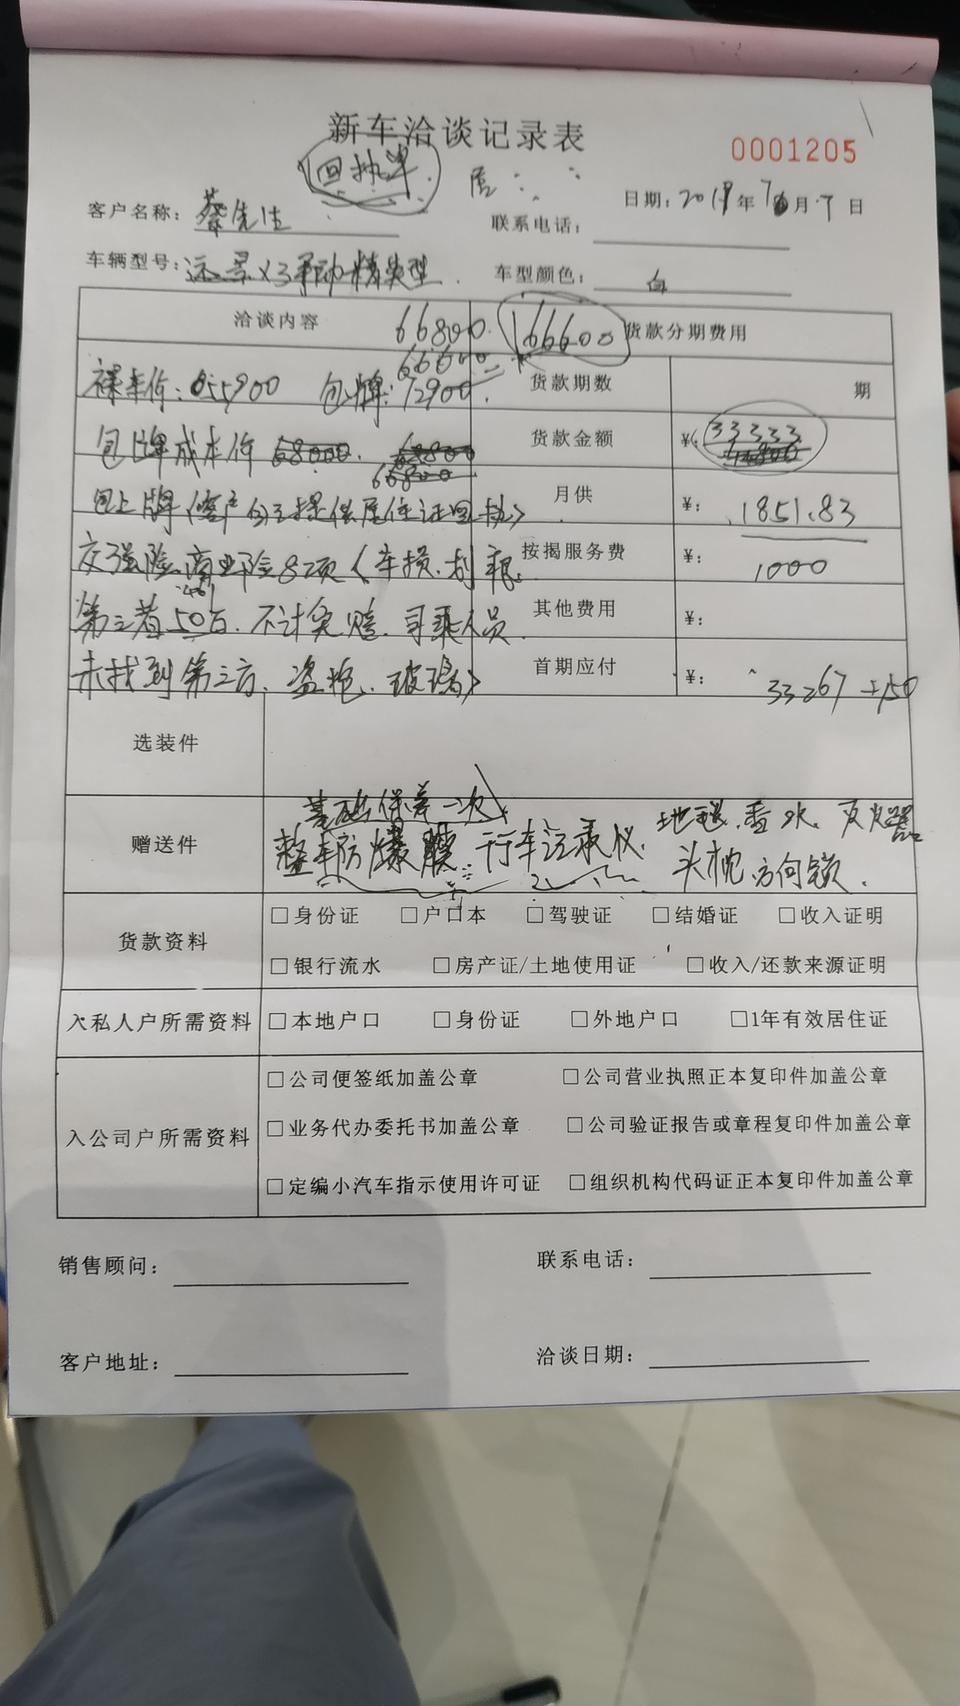 新车洽谈记录表
0001205
回执单
居
客户名称：蔡先生 联系电话： 日期：2019年7月7日
车辆型号：远景X3手动精英型 车型颜色：白
洽谈内容 66800 166600 货款分期费用
66600
裸车价：55900 包牌：72900 货款期数 期
包上牌成本价 68000 68800 货款金额 ¥：33333
66800
包上牌（客户自己提供居住证回执） 月供 ¥：1851.83
交强险、商业险8项（车损、划痕 按揭服务费 ¥：1000
第三者50万、不计免赔、司乘人员 其他费用 ¥：
未找到第三方、盗抢、玻璃） 首期应付 ¥：33267
选装件
基础保养一次
赠送件 整车防爆膜 行车记录仪 地毯、香水、灭火器
头枕 方向锁
货款资料 □身份证 □户口本 □驾驶证 □结婚证 □收入证明
□银行流水 □房产证/土地使用证 □收入/还款来源证明
入私人户所需资料 □本地户口 □身份证 □外地户口 □1年有效居住证
□公司便签纸加盖公章 □公司营业执照正本复印件加盖公章
入公司户所需资料 □业务代办委托书加盖公章 □公司验证报告或章程复印件加盖公章
□定编小汽车指示使用许可证 □组织机构代码证正本复印件加盖公章
销售顾问： 联系电话：
客户地址： 洽谈日期：